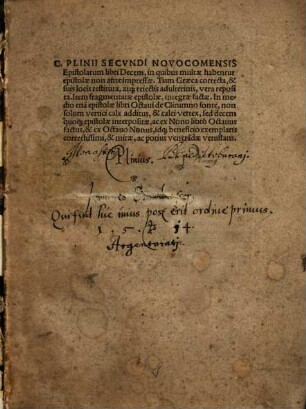 C. PLINII SECVNDI NOVOCOMENSIS
Epistolarum libri Decem, in quibus multæ habentur
epistolæ non ante impressæ. Tum Græca correcta, &
suis locis restituta, atq; reiectis adulterinis, vera reposi
ta. Item fragmentatæ epistolæ, integræ factæ. In me
dio etiā epistolæ libri Octaui de Clitumno fonte, non
solum vertici calx additus, & calci vertex, sed decem
quoq; epistolæ interpositæ, ac ex Nono libro Octauus
factus, & ex Octauo Nonus, idq; beneficio exemplaris
correctissimi, & miræ, ac potius venerandæ vetustatis.
Plinius.
Qui fuit huc imus post erit ordine primus.
1 5 14
Argentorati